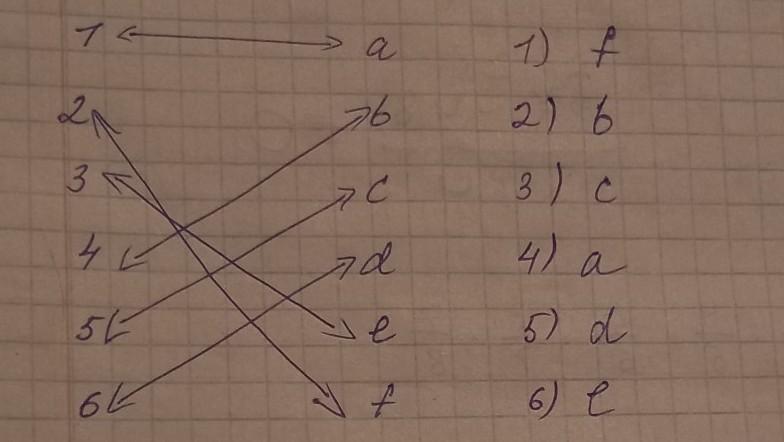 1 a 1) f
2 b 2) b
3 c 3) c
4 d 4) a
5 e 5) d
6 f 6) e